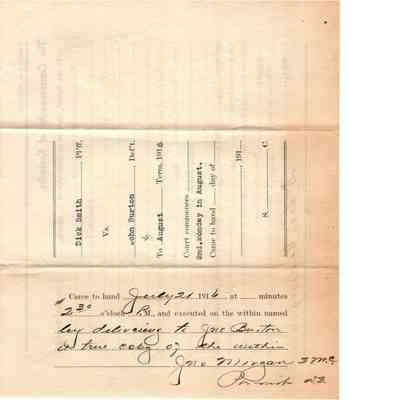 Dick Smith Pl'ff.
Vs.
John Burton Def't.
To August Term, 1914
Court commences
2nd. Monday in August.
Came to hand day of
, 191
S. C.
Came to hand July 21 1914 at minutes
2 30 o'clock P.M., and executed on the within named
by delivering to Jno Burton
a true copy of the within
Jno Morgan